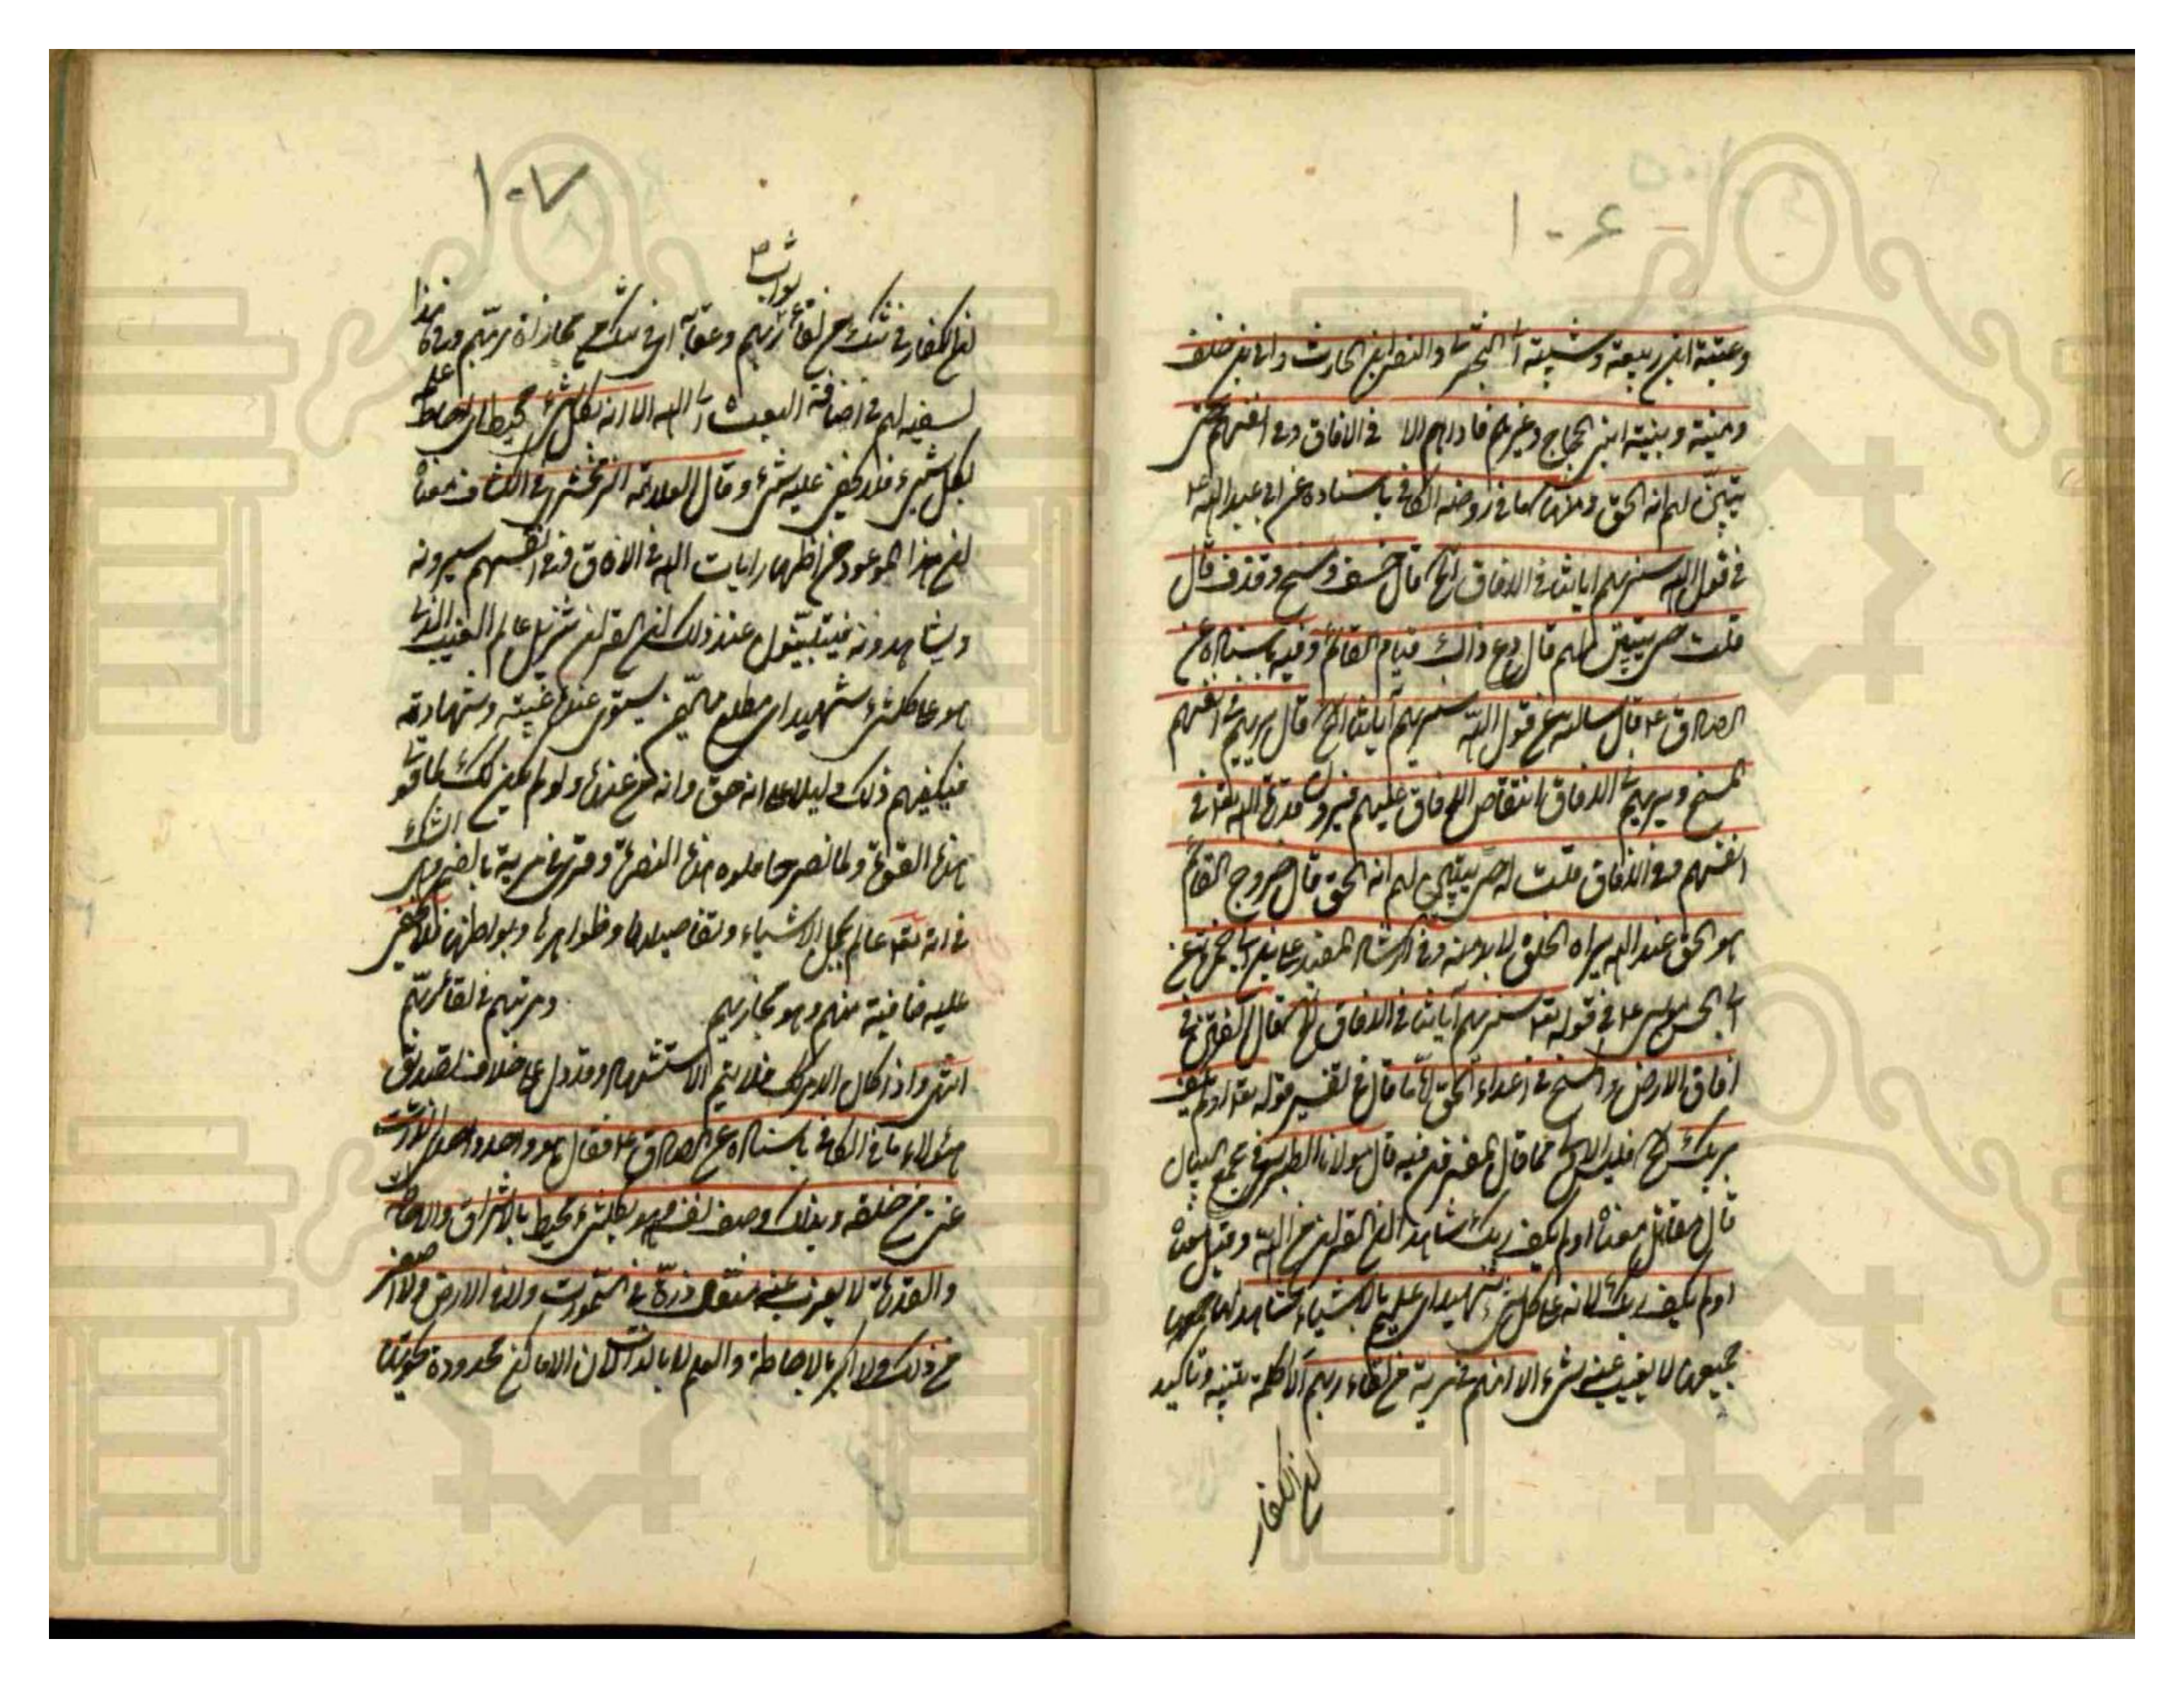 ١٠٦
وعتبة ابن ربيعة وشيبة ابا البختري والنضر ابن الحارث وابي بن خلف
ومنبه ونبيه ابني الحجاج وغيرهم فاراهم الا في الافاق وفي انفسهم حتى
يتبين لهم انه الحق ومنها كما في روضة الكافي باسناده عن ابي عبد الله ع
في قول الله سنريهم اياتنا في الافاق الخ قال خسف ومسخ وقذف قال
قلت حتى يتبين لهم قال دع ذاك قيام القائم وفيه باسناده عن
الصادق ع قال سالته عن قول الله سنريهم آياتنا الخ قال يريهم في انفسهم
المسخ ويريهم في الافاق انتقاض الافاق عليهم فيرون قدرة الله تعه في
انفسهم وفي الافاق قلت له حتى يتبين لهم انه الحق قال خروج القائم
هو الحق عند الله يراه الخلق لا بد منه وفي ارشاد المفيد علي بن ابي حمزة عن
ابي الحسن موسى ع في قوله تعه سنريهم آياتنا في الافاق الخ قال الفتن في
افاق الارض والمسخ في اعداء الحق اما ما قال في تفسير قوله تعه اولم يكف
بربك الخ فليس الامر كما قال المفسرون فيه قال مولانا الطبرسي في مجمع البيان
قال مقاتل معناه اولم يكف ربك شاهدا ان القران من الله وقيل معناه
اولم يكف ربك لانه على كل شيء شهيد اي عليم بالاشياء شاهد لها
جميعها لا يغيب عنه شيء الا انهم في مرية من لقاء ربهم الا كلمة تنبيه وتاكيد
ان الكفار
١٠٧
ثواب
ان الكفار في شك من لقاء ربهم وعقابه اي في شك من مجازاة ربهم وفي هذا
تسفيه لهم في اضافة البعث الى الله الا انه بكل شيء محيط اي احاط علمه
بكل شيء فلا يخفى عليه شيء وقال العلامة الزمخشري في الكشاف معناه
ان هذا الموعود من اظهار ايات الله في الافاق وفي انفسهم سيرونه
ويشاهدونه فيتبينون عند ذلك ان القران تنزيل عالم الغيب الذي
هو على كل شيء شهيد اي مطلع مهيمن يستوي عنده غيبه وشهادته
فيكفيهم ذلك دليلا على انه حق وانه من عنده ولو لم يكن كذلك لما قوي
هذه القوة ولما نصر حاملوه هذه النصرة وقرئ في مرية بالضم وهي الشك
في انه تعه عالم بجمل الاشياء وتفاصيلها وظواهرها وبواطنها فلا يخفى
عليه خافية منهم وهو مجازيهم ومريتهم في لقاء ربهم
انتهى واذا كان الامر كك فلا يتم الاستشهاد وقد دل على خلاف تصديق
هؤلاء ما في الكافي باسناده عن الصادق ع فقال هو واحد واحدي الذات
بائن من خلقه وبذاك وصف نفسه وهو بكل شيء محيط بالاشراف والاحاطة
والقدرة لا يعزب عنه مثقال ذرة في السموات ولا في الارض ولا اصغر
من ذلك ولا اكبر بالاحاطة والعلم لا بالذات لان الاماكن محدودة تحويها